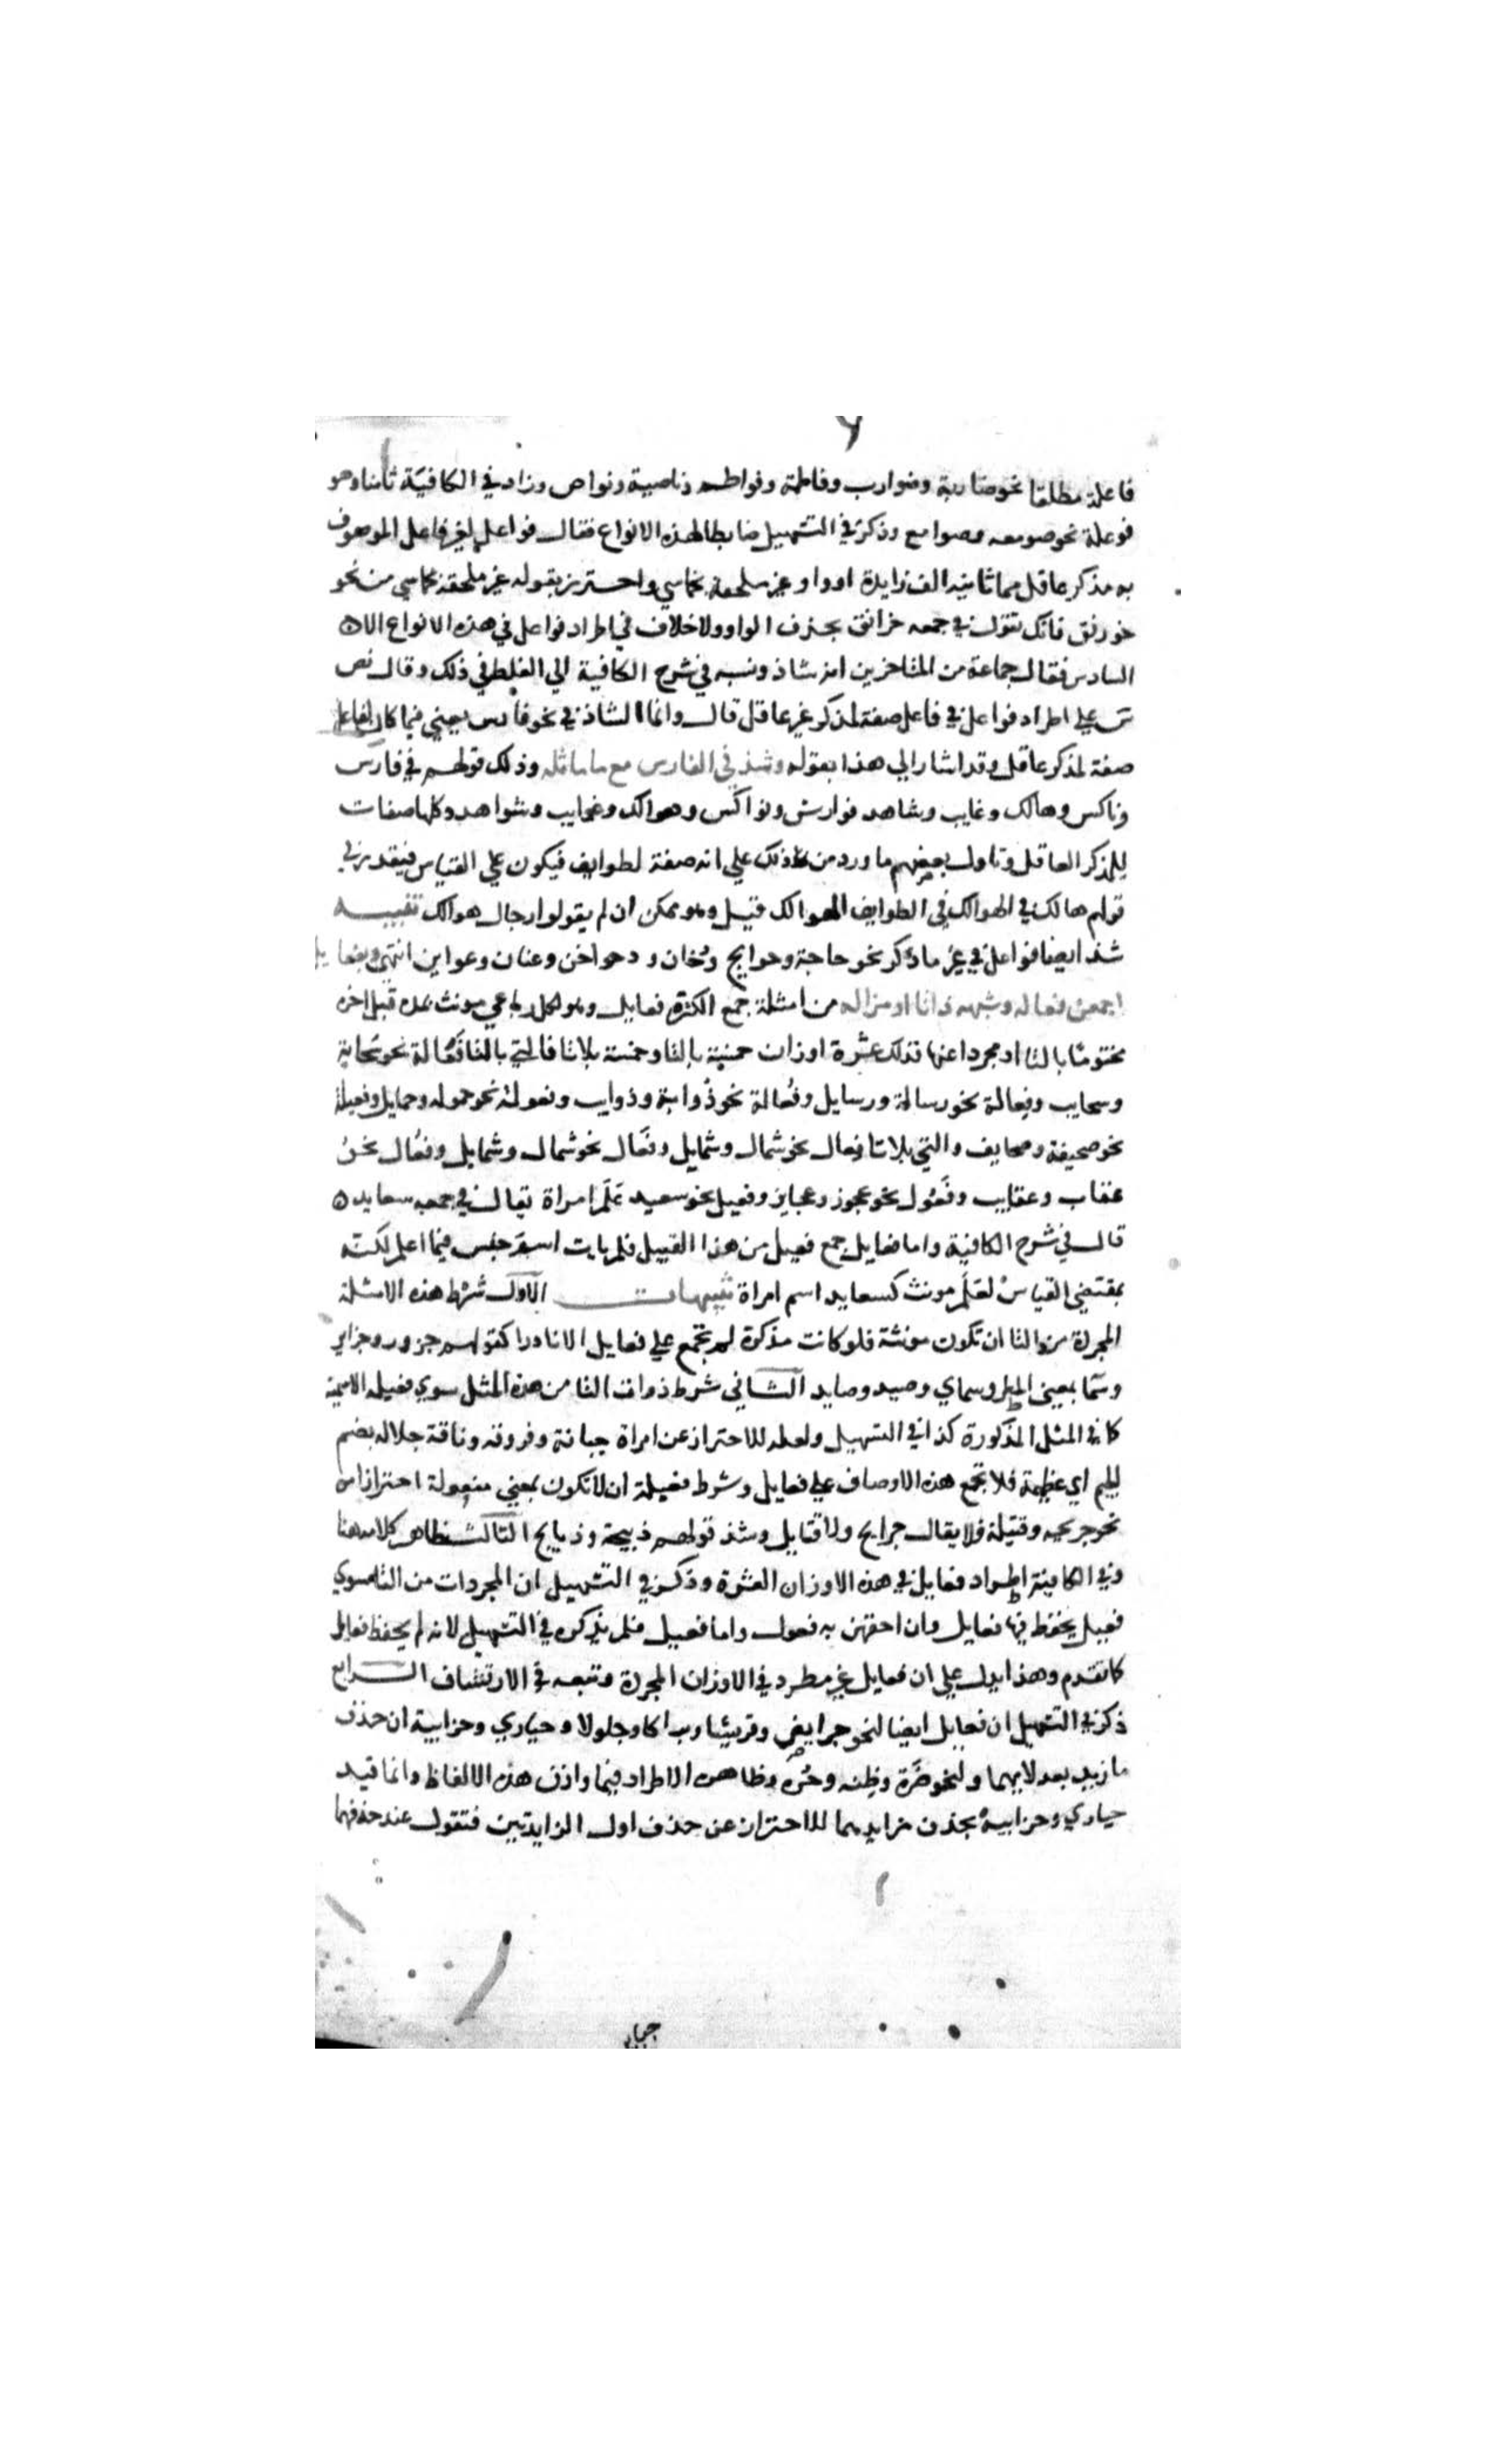 فاعلة مطلقا نحو ضاربة وضوارب وفاطمة وفواطم وناصية ونواص وزاد في الكافية ثامنا وهو
فوعلة نحو صومعه وصوامع وذكر في التسهيل ضابطا لهذه الانواع فقال فواعل لغير فاعل الموصوف
به مذكر عاقل مما ثانيه الف زايدة او واو غير ملحقة بخماسي واحترز بقوله غير ملحقة بخماسي من نحو
خورنق فانك تقول في جمعه خرانق بحذف الواو ولا خلاف في اطراد فواعل في هذه الانواع الا
السادس فقال جماعة من المتاخرين انه شاذ ونسبه في شرح الكافية الي الغلط في ذلك وقال نص
س علي اطراد فواعل في فاعل صفة لمذكر غير عاقل قال وانما الشاذ في نحو فارس يعني فيما كان لفاعل
صفة لمذكر عاقل وقد اشار الي هذا بقوله وشذ في الفارس مع ما ماثله وذلك قولهم في فارس
وناكس وهالك وغايب وشاهد فوارس ونواكس وهوالك وغوايب وشواهد وكلها صفات
للمذكر العاقل وتاول بعضهم ما ورد من ذلك علي انه صفة لطوايف فيكون علي القياس فيقدر في
قولهم هالك في الهوالك في الطوايف الهوالك قيل وهو ممكن ان لم يقولوا رجال هوالك تنبيه
شذ ايضا فواعل في غير ما ذكر نحو حاجة وحوايج ودخان ودواخن وعنان وعواين انتهي وبفعايل
اجمعن فعاله وشبهه ذا تا او مزاله من امثلة جمع الكثرة فعايل وهو لكل رباعي مونث بمده قبل اخره
مختوما بالتا او مجردا عنها فتلك عشرة اوزان خمسة بالتا وخمسة بلا تا فالتي بالتا فَعالة نحو سحابة
وسحايب وفِعالة نحو رسالة ورسايل وفُعالة نحو ذُوابة وذوايب وفعولة نحو حموله وحمايل وفعيلة
نحو صحيفة وصحايف والتي بلا تا فِعال نحو شمال وشمايل وفَعال نحو شمال وشمايل وفعُال نحو
عقاب وعقايب وفَعُول نحو عجوز وعجايز وفعيل نحو سعيد عَلَم امراة يقال في جمعه سعايد
قال في شرح الكافية واما فعايل جمع فعيل من هذا القبيل فلم يات اسم جنس فيما اعلم لكنه
بمقتضي القياس لعَلَم مونث كسعايد اسم امراة تنبيهات الاول شرط هذه الامثلة
المجردة من التا ان تكون مونثة فلو كانت مذكرة لم تجمع علي فعايل الا نادرا كقولهم جزور وجزاير
وسَما بمعني المطر وسماي وصيد وصايد الثاني شرط ذوات التا من هذه المثل سوي فعيله الاسمية
كما في المثل المذكورة كذا في التسهيل ولعله للاحتراز عن امراة جبانة وفروقه وناقة جلاله بضم
الجيم اي عظيمة فلا تجمع هذه الاوصاف علي فعايل وشرط فعيلة ان لا تكون بمعني مفعولة احترازا من
نحو جريحه وقتيلة فلا يقال جرايح ولا قتايل وشذ قولهم ذبيحة وذبايح الثالث ظاهر كلامه هنا
وفي الكافية اطراد فعايل في هذه الاوزان العشرة وذكر في التسهيل ان المجردات من التا سوي
فعيل يحفظ فيها فعايل وان احقهن به فعول واما فعيل فلم يذكره في التسهيل لانه لم يحفظ فيه فعايل
كما تقدم وهذا يدل علي ان فعايل غير مطرد في الاوزان المجردة وتبعه في الارتشاف الرابع
ذكر في التسهيل ان فعايل ايضا لنحو جرايض وقريثا وبراكا وجلولا وحباري وحزابية ان حذف
ما زيد بعد لاميهما ولنحو ضَرة وظنه وحُره وظاهره الاطراد فيما وازن هذه الالفاظ وانما قيد
حباري وحزابية بحذف مزايديهما للاحتراز عن حذف اول الزايدتين فتقول عند حذفهما